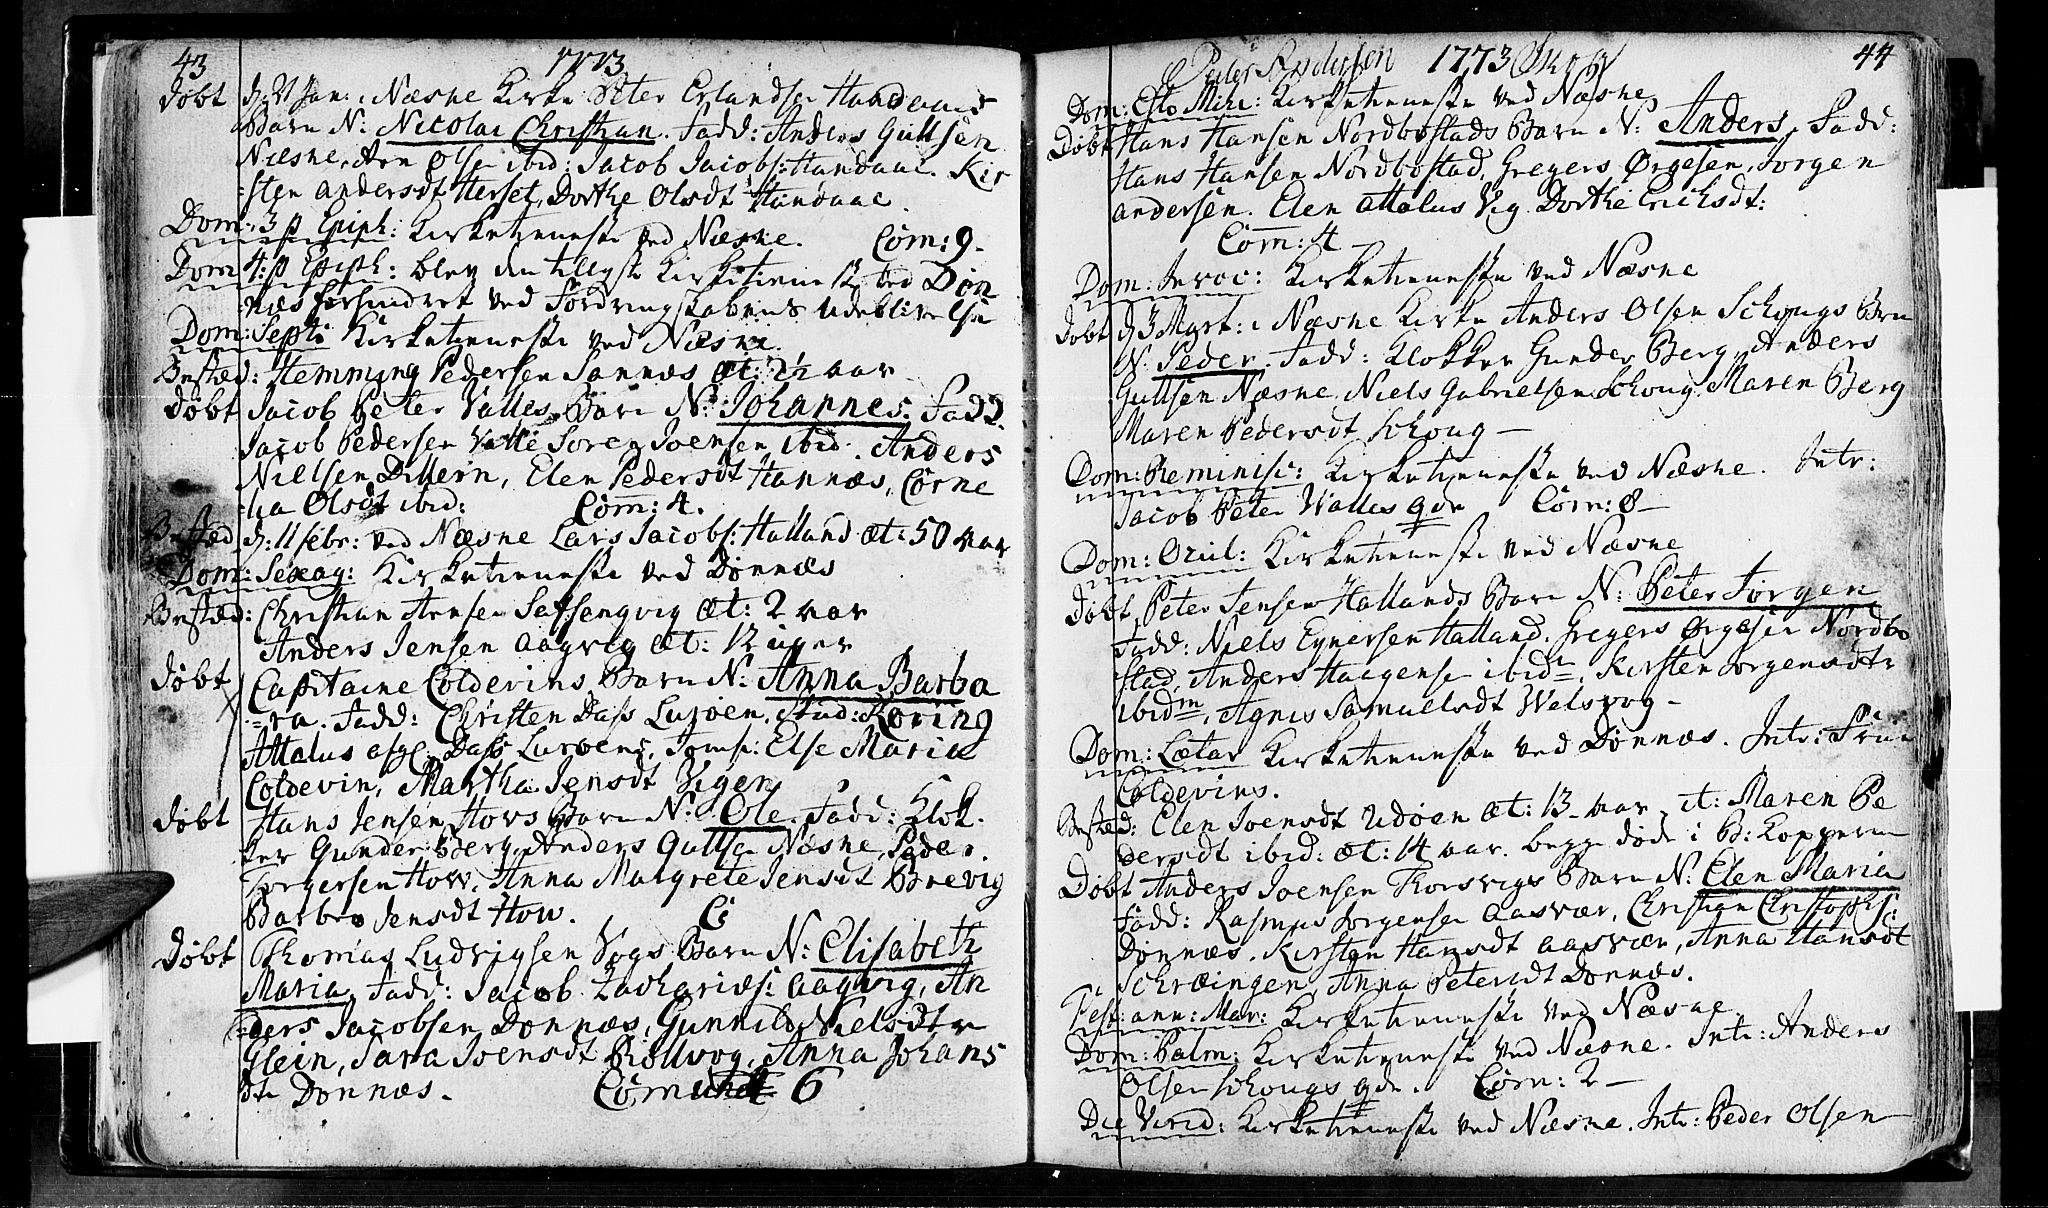 43 1773
Døbt d: 21 Jan: i Næsne Kirke Peter Erlandsen Handaaes
Barn N: Nicolai Christian. Fadd: Anders Gullsen
Næsne, Aron Olsen ibid: Jacob Jacobs: Handaae. Kir
=sten Andersdt Herset, Dorthe Olsdt Handaae.
Dom: 3 p Epiph: Kirketieneste ved Næsne. Com: 9.
Dom 4: p Epiph: blev den tillyste Kirketieneste ved Døn
næs forhindret ved Fordringskabens Udeblivelse
Dom: Sept: Kirketieneste ved Næsne.
Bested: Hemming Pedersen Sannæs æt: 2½ aar
Døbt Jacob Peter Valles Barn N: Johannes. Fadd.
Jacob Pedersen Valle Soren Joensen ibid. Anders
Nielsen Dillern, Elen Pedersdt Hannæs, Corne
lia Olsdt ibid: Com: 4.
Bested d: 11 febr: ved Næsne Lars Jacobs: Halland æt: 50 aar
Dom: Sexag: Kirketieneste ved Dønnæs
Bested: Christian Arnsen Saffsengvig æt: 2 aar
Anders Jensen Aagvig æt: 12 uger
Døbt Capitaine Coldevins Barn N: Anna Barba
=ra. Fadd: Christen Dass Lurøen, Stud: Røring
Attalus afgl. Dass Lurøens, Jomfr: Else Maria
Coldevin, Martha Jensdt Vigen
Døbt Hans Jensen Hovs Barn N: Ole. Fadd: Klok.
ker Gunder Berg, Anders Gullsen Næsne, Peder
Torgersen How, Anna Margrete Jensdt Brevig
Barbro Jensdt How.
Døbt Thomas Ludvigsen Vogs Barn N: Elisabeth
Maria Fadd: Jacob Zachariæs: Aagvig, An
=ders Jacobsen Dønnæs, Gunnild Nielsdtr
Glein, Sara Joensdt Riollvog, Anna Johans
dtr Dønnæs. Com 6
Peder Andersen 1773 44
Dom: Esto Mihi: Kirketieneste ved Næsne
Døbt Hans Hansen Nordbostads Barn N: Anders, Fadd:
Hans Hansen Nordbostad, Gregers Ørgesen, Jorgen
Andersen. Elen Attalus Vig. Dorthe Erichsdt:
Com: 4
Dom: Invoc: Kirketieneste ved Næsne
Døbt d 3 Mart: i Næsne Kirke Anders Olsen Schougs Brn
N. Peder. Fadd: Klokker Gunder Berg, Anders
Gullsen Næsne. Niels Gabrielsen Schoug. Maren Berg
Maren Pedersdt Schoug —
Dom: Reminisc: Kirketieneste ved Næsne. Intr:
Jacob Peter Walles qde Com: 8 —
Dom: Ocul: Kirketieneste ved Næsne
Døbt, Peter Jensen Hallands Barn N: Peter Jørgen
Fadd: Niels Eynersen Halland. Gregers Ørgesen Nordbo
stad, Anders Haagensen ibidm, Kirsten Jorgensdtr
ibidm, Agnis Samuelsdt Welsvog —
Dom: Lætar Kirketieneste ved Dønnæs. Intr: Frue
Coldevins.
Bested: Elen Joensdt Udøen æt: 13 aar, it: Maren Pe
dersdt ibid: æt: 14 aar. begge døde i B: Kopperne
Døbt Anders Joensen Thorsvigs Barn N: Elen Maria
Fadd: Rasmus Jorgensen Aasvær, Christian Christophs:
Dønnæs. Kirsten Hansdt Aasvær, Anna Hansdt
Schræingen, Anna Petersdt Dønnæs.
Fest: ann: Mar: Kirketieneste ved Næsne
Dom: Palm: Kirketieneste ved Næsne. Intr: Anders
Olsen Schougs qde. Com: 2 —
Die Virid: Kirketieneste ved Næsne. Intr: Peder Olsen